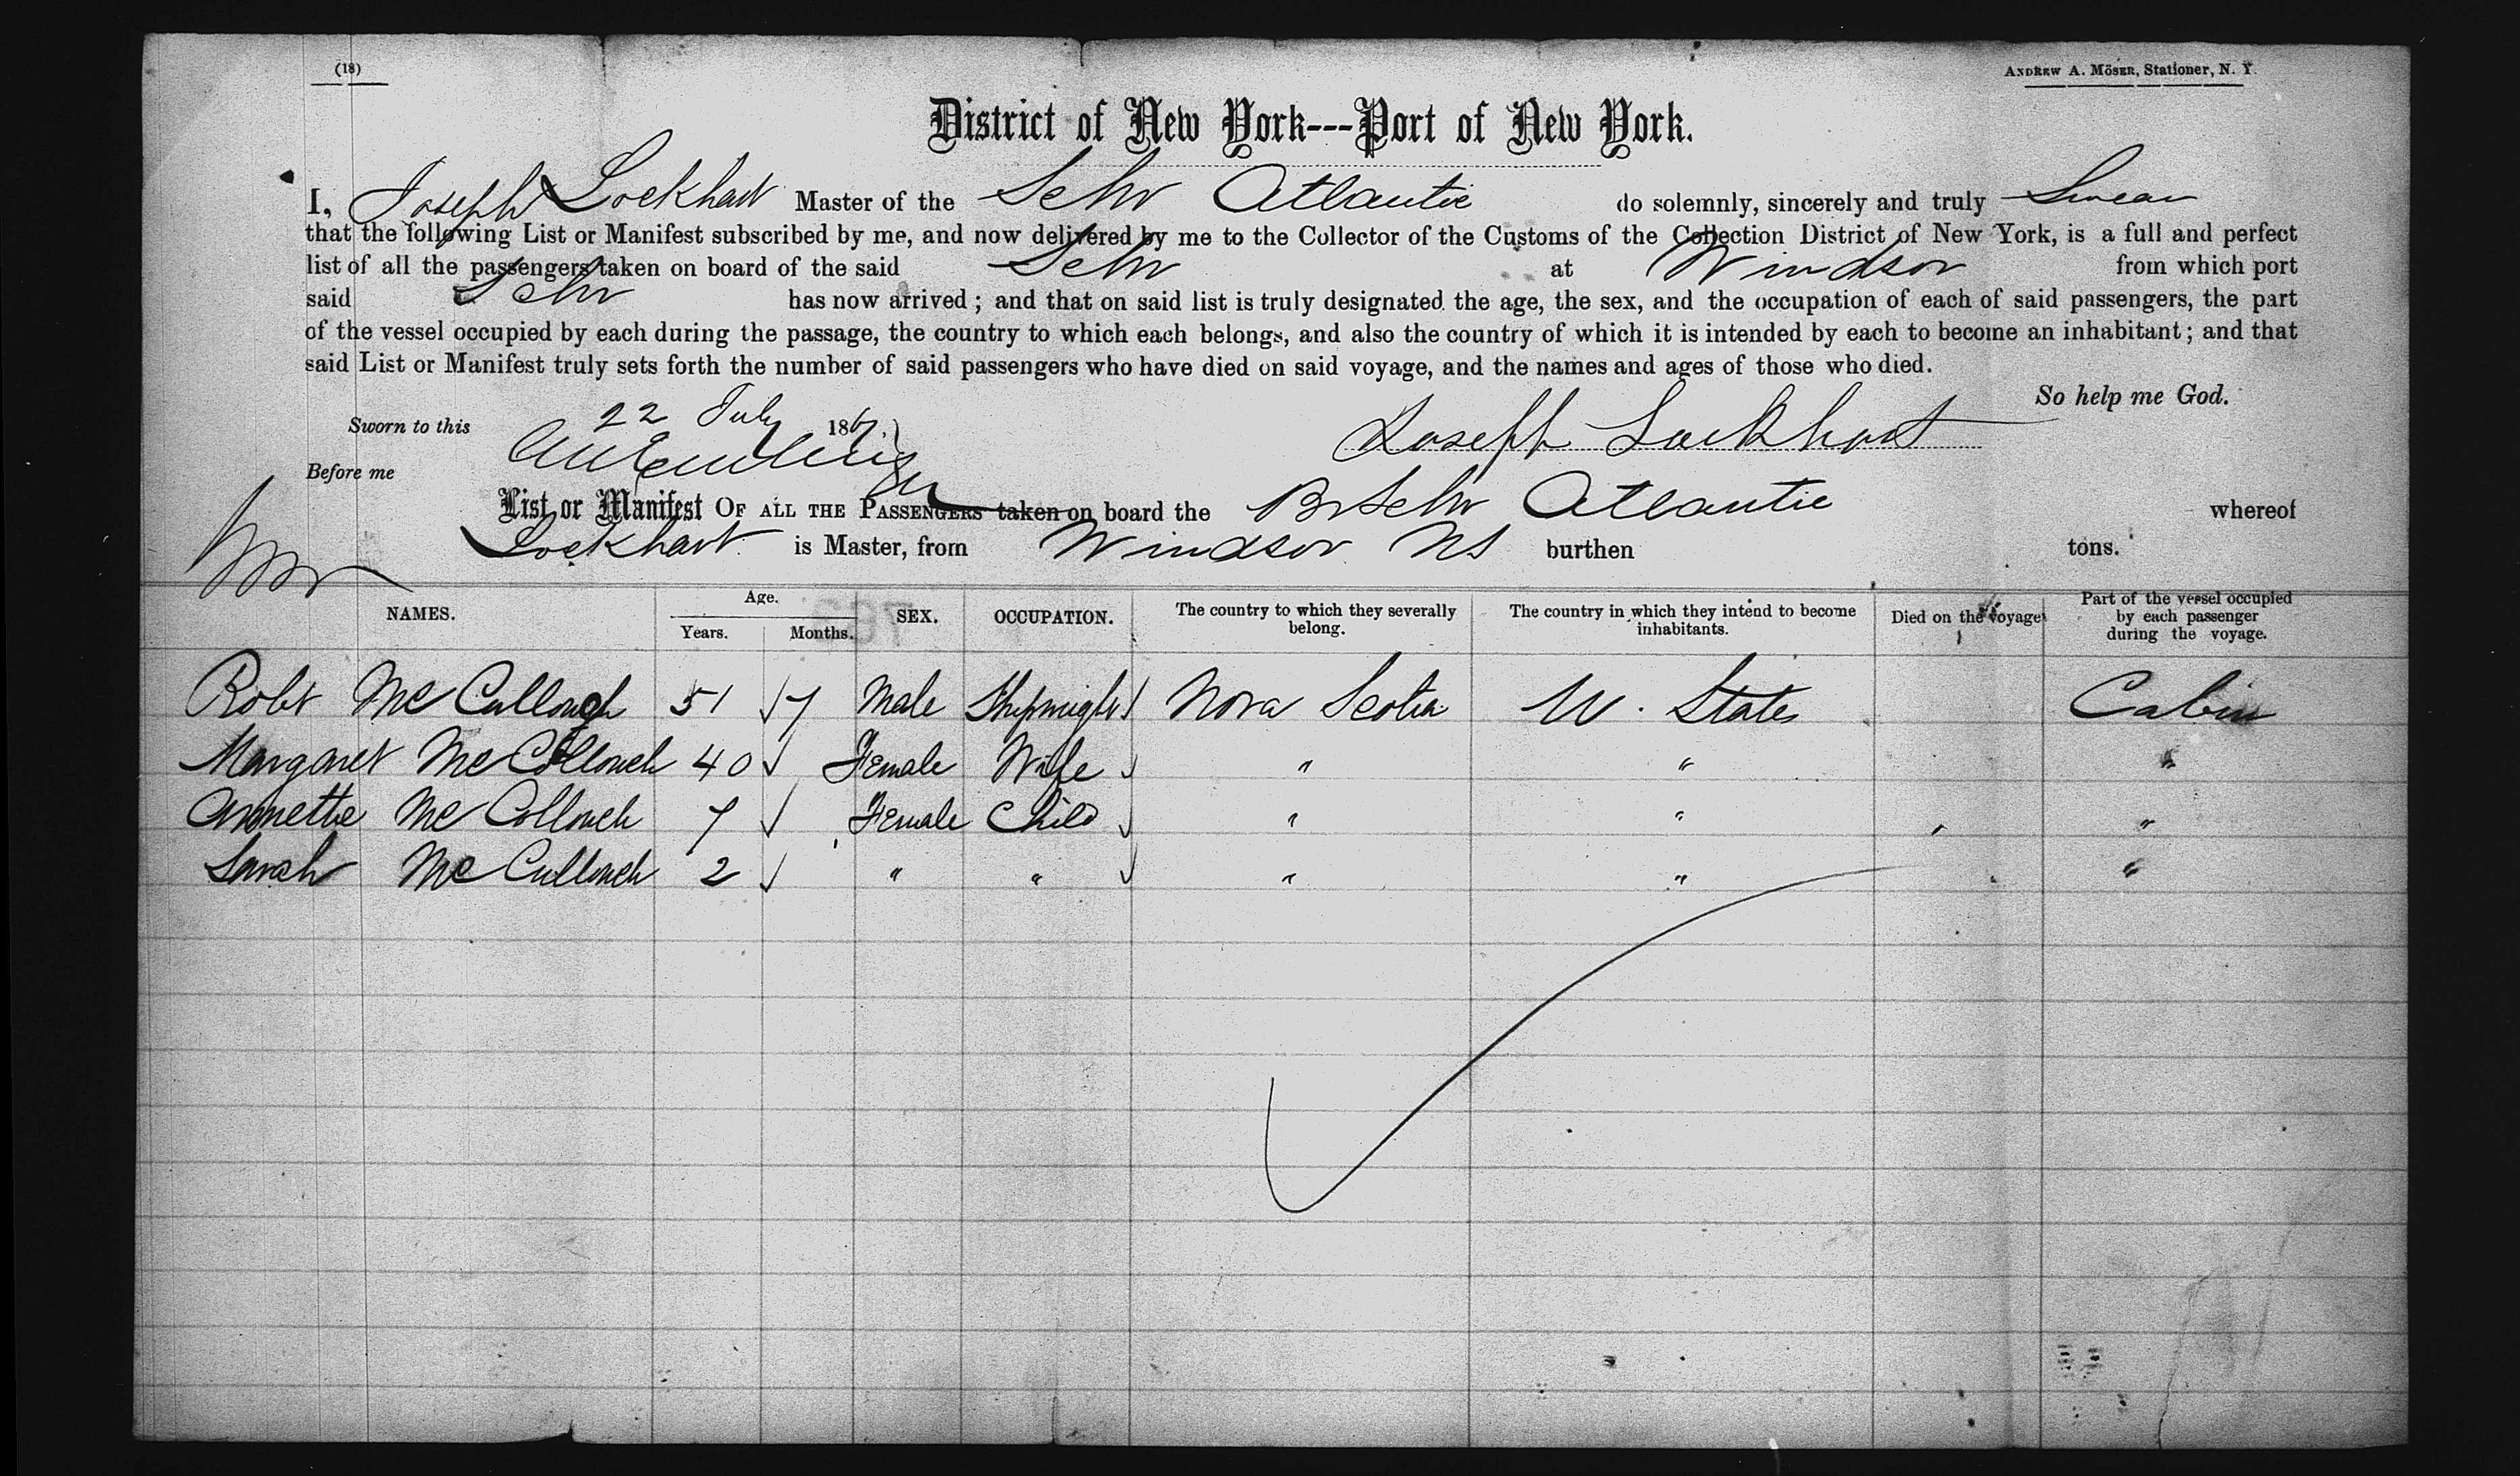 (18)
ANDREW A. MÖSER, Stationer, N. Y.
District of New York---Port of New York.
I, Joseph Lockhart Master of the Schr Atlantic do solemnly, sincerely and truly Swear
that the following List or Manifest subscribed by me, and now delivered by me to the Collector of the Customs of the Collection District of New York, is a full and perfect
list of all the passengers taken on board of the said Schr at Windsor from which port
said Schr has now arrived ; and that on said list is truly designated the age, the sex, and the occupation of each of said passengers, the part
of the vessel occupied by each during the passage, the country to which each belongs, and also the country of which it is intended by each to become an inhabitant ; and that
said List or Manifest truly sets forth the number of said passengers who have died on said voyage, and the names and ages of those who died.
So help me God.
Sworn to this 22 July 1867. Joseph Lockhart
Before me
List or Manifest OF ALL THE PASSENGERS taken on board the Br Schr Atlantic whereof
Lockhart is Master, from Windsor NS burthen tons.
NAMES. Age. Years. Months. SEX. OCCUPATION. The country to which they severally belong. The country in which they intend to become inhabitants. Died on the voyage Part of the vessel occupied by each passenger during the voyage.
Robt McCullough 51 7 Male Shipwright Nova Scotia U. States Cabin
Margaret McCollouch 40 Female Wife " " "
Annette McCollouch 7 Female Child " " "
Sarah McCullouch 2 " " " " "